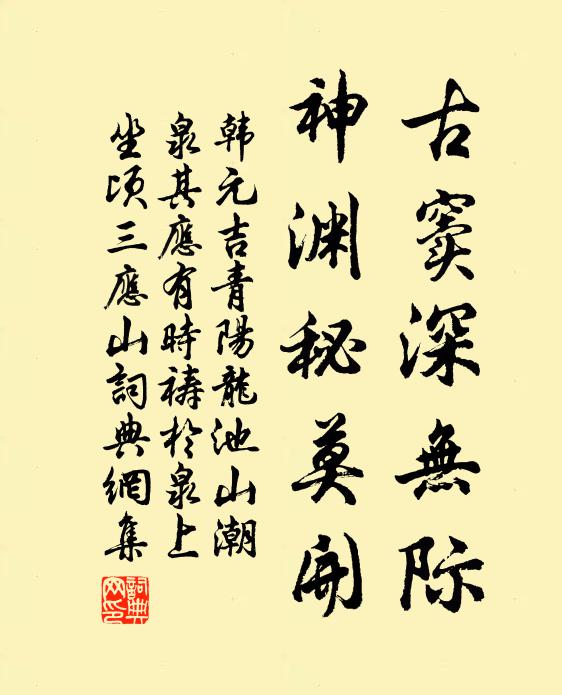 古窦深無际
神渊秘莫開
韩元吉青陽龍池山潮
泉其應有時祷於泉上
坐顷三應山詞典網集
詞典网印